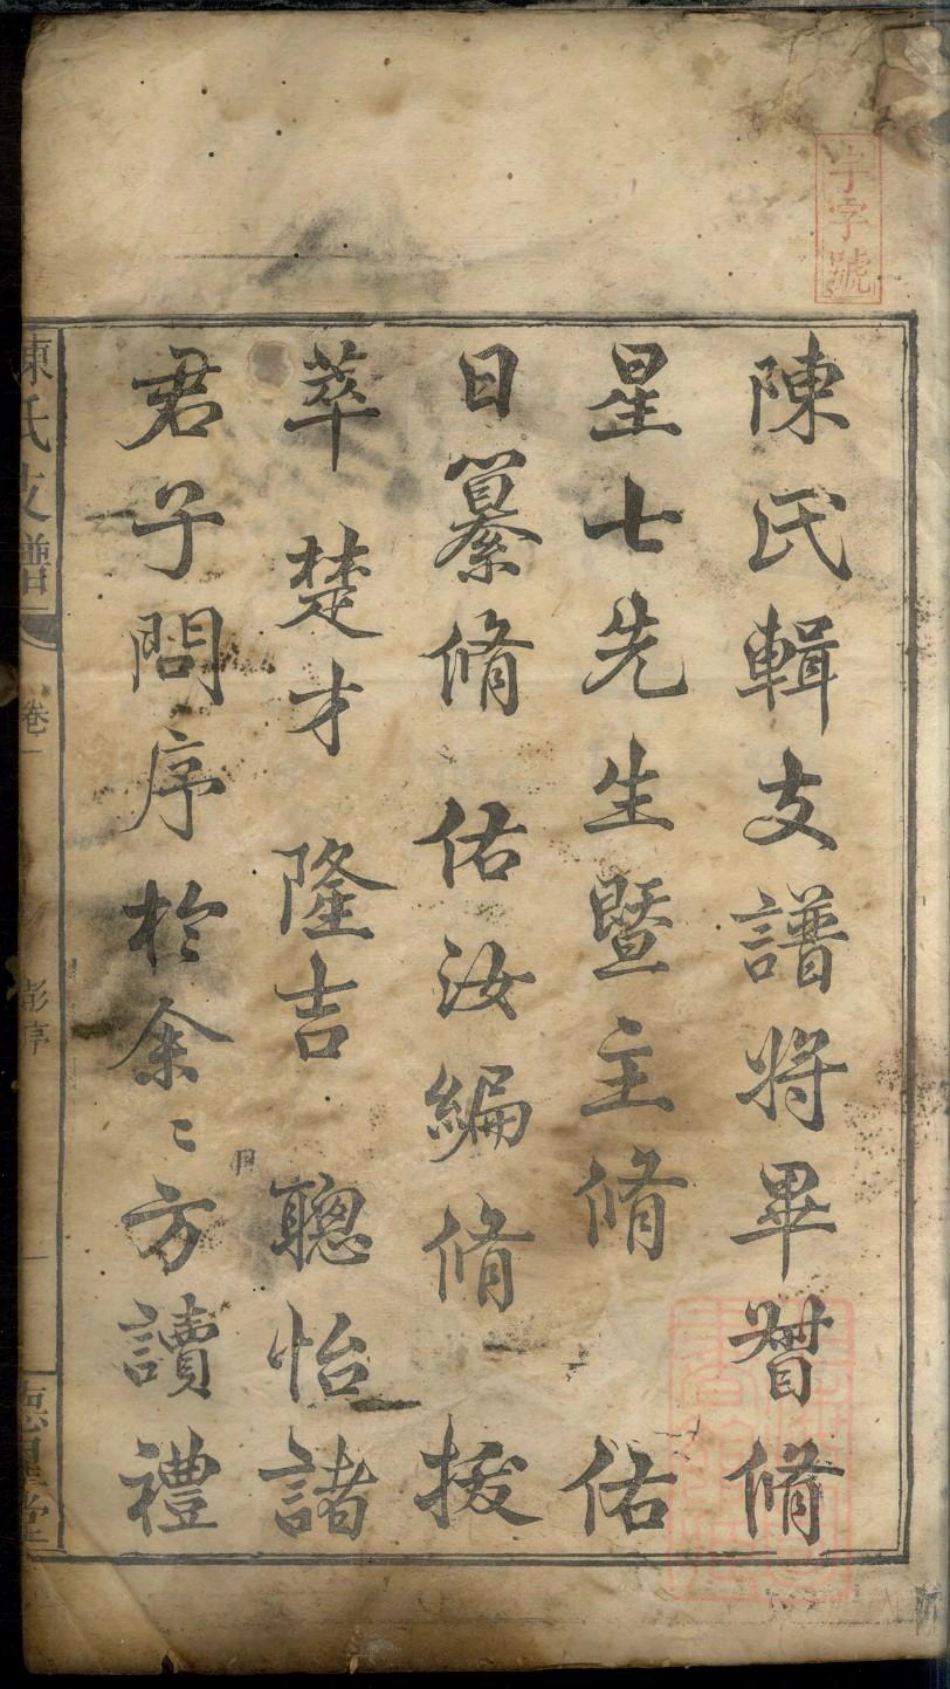 字號
陳氏輯支譜將畢督脩 佑
星七先生暨主脩 佑
日纂脩 佑汝編脩 拔
萃 楚才 隆吉 聰怡諸
君子問序於余〻方讀禮
陳氏支譜 卷一 彭序 一 星堂